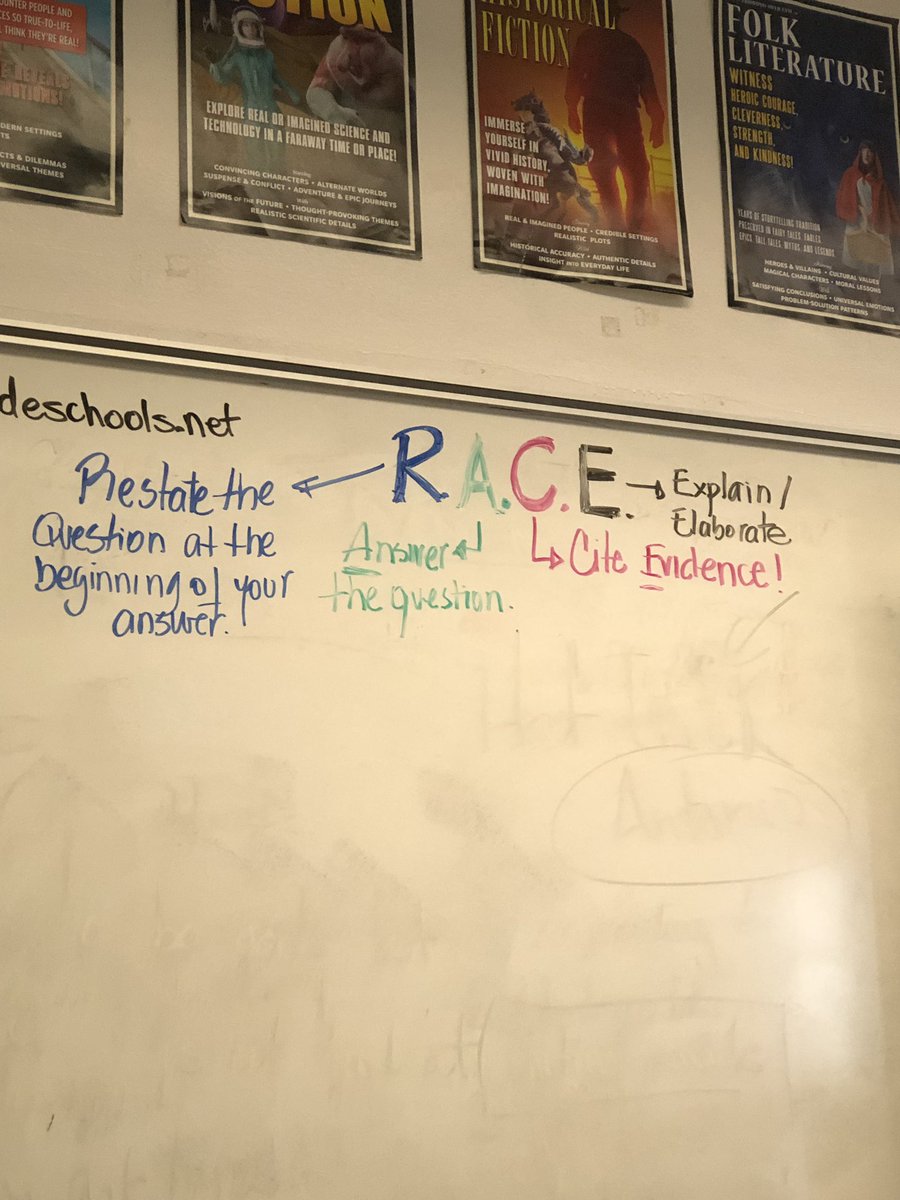 COUNTER PEOPLE AND
SO TRUE-TO-LIFE,
THINK THEY'RE REAL!
SETTINGS
& DILEMMAS
THEMES
EXPLORE REAL OR IMAGINED SCIENCE AND
TECHNOLOGY IN A FARAWAY TIME OR PLACE!
CONVINCING CHARACTERS • ALTERNATE WORLDS
SUSPENSE & CONFLICT • ADVENTURE & EPIC JOURNEYS
With
VISIONS OF THE FUTURE • THOUGHT-PROVOKING THEMES
REALISTIC SCIENTIFIC DETAILS
HISTORICAL
FICTION
IMMERSE
YOURSELF IN
VIVID HISTORY,
WOVEN WITH
IMAGINATION!
REAL & IMAGINED PEOPLE • CREDIBLE SETTINGS
REALISTIC PLOTS
With
HISTORICAL ACCURACY • AUTHENTIC DETAILS
INSIGHT INTO EVERYDAY LIFE
FOLK
LITERATURE
WITNESS
HEROIC COURAGE,
CLEVERNESS,
STRENGTH,
AND KINDNESS!
YEARS OF STORYTELLING TRADITION
PRESENTED IN FAIRY TALES, FABLES,
EPICS, TALL TALES, MYTHS, AND LEGENDS
HEROES & VILLAINS • CULTURAL VALUES
MAGICAL CHARACTERS • MORAL LESSONS
With
SATISFYING CONCLUSIONS • UNIVERSAL EMOTIONS
PROBLEM-SOLUTION PATTERNS
deschools.net
R.A.C.E.
Restate the
Question at the
beginning of your
answer.
Answer
the question.
Cite Evidence!
Explain/
Elaborate